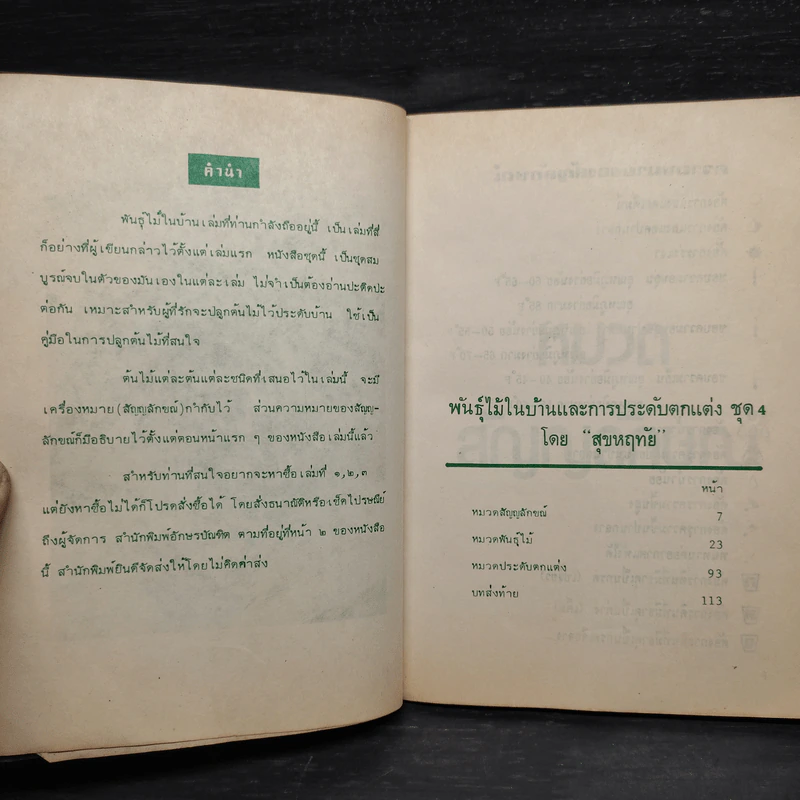 คำนำ
พันธุ์ไม้ในบ้านเล่มที่ท่านกำลังถืออยู่นี้ เป็นเล่มที่สี่
ก็อย่างที่ผู้เขียนกล่าวไว้ตั้งแต่เล่มแรก หนังสือชุดนี้ เป็นชุดสม
บูรณ์จบในตัวของมันเองในแต่ละเล่ม ไม่จำเป็นต้องอ่านปะติดปะ
ต่อกัน เหมาะสำหรับผู้ที่รักจะปลูกต้นไม้ไว้ประดับบ้าน ใช้เป็น
คู่มือในการปลูกต้นไม้ที่สนใจ
ต้นไม้แต่ละต้นแต่ละชนิดที่เสนอไว้ในเล่มนี้ จะมี
เครื่องหมาย(สัญญลักขณ์)กำกับไว้ ส่วนความหมายของสัญญ-
ลักขณ์ก็มีอธิบายไว้ตั้งแต่ตอนหน้าแรก ๆ ของหนังสือเล่มนี้แล้ว
สำหรับท่านที่สนใจอยากจะหาซื้อเล่มที่ ๑,๒,๓
แต่ยังหาซื้อไม่ได้ก็โปรดสั่งซื้อได้ โดยสั่งธนาณัติหรือเช็คไปรษณีย์
ถึงผู้จัดการ สำนักพิมพ์อักษรบัณฑิต ตามที่อยู่ที่หน้า ๒ ของหนังสือ
นี้ สำนักพิมพ์ยินดีจัดส่งให้โดยไม่คิดค่าส่ง
พันธุ์ไม้ในบ้านและการประดับตกแต่ง ชุด 4
โดย "สุขหฤทัย"
หน้า
หมวดสัญญลักขณ์ 7
หมวดพันธุ์ไม้ 23
หมวดประดับตกแต่ง 93
บทส่งท้าย 113